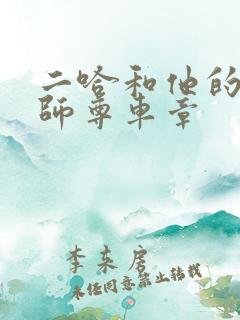 二哈和他的
师尊车章
李来居
未经同意禁止转载